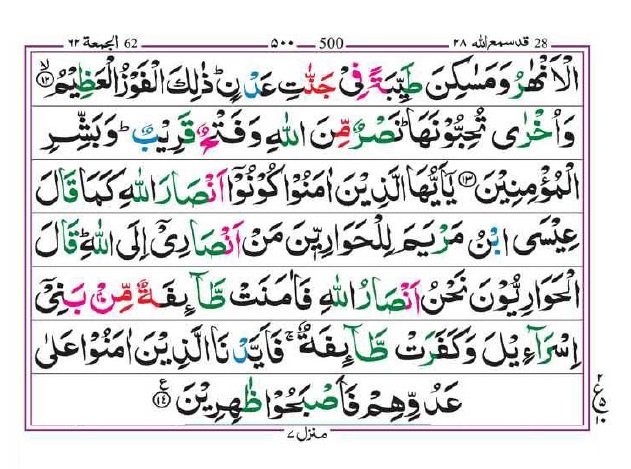 28 قدسمع الله ٢٨ 500 ٥٠٠ 62 الجمعة ٦٢
الْاَنْهٰرُ وَمَسٰكِنَ طَيِّبَةً فِيْ جَنّٰتِ عَدْنٍ ؕ ذٰلِكَ الْفَوْزُ الْعَظِيْمُ ۙ﴿١٢﴾
وَاُخْرٰى تُحِبُّوْنَهَا ؕ نَصْرٌ مِّنَ اللّٰهِ وَفَتْحٌ قَرِيْبٌ ؕ وَبَشِّرِ
الْمُؤْمِنِيْنَ ﴿١٣﴾ يٰۤاَيُّهَا الَّذِيْنَ اٰمَنُوْا كُوْنُوْۤا اَنْصَارَ اللّٰهِ كَمَا قَالَ
عِيْسَى ابْنُ مَرْيَمَ لِلْحَوَارِيّٖنَ مَنْ اَنْصَارِيْۤ اِلَى اللّٰهِ ؕ قَالَ
الْحَوَارِيُّوْنَ نَحْنُ اَنْصَارُ اللّٰهِ فَاٰمَنَتْ طَّآىِٕفَةٌ مِّنْۢ بَنِيْۤ
اِسْرَآءِيْلَ وَكَفَرَتْ طَّآىِٕفَةٌ ۚ فَاَيَّدْنَا الَّذِيْنَ اٰمَنُوْا عَلٰى
عَدُوِّهِمْ فَاَصْبَحُوْا ظٰهِرِيْنَ ﴿١٤﴾ ع
٢
ع ٥
١٠
منزل ٧